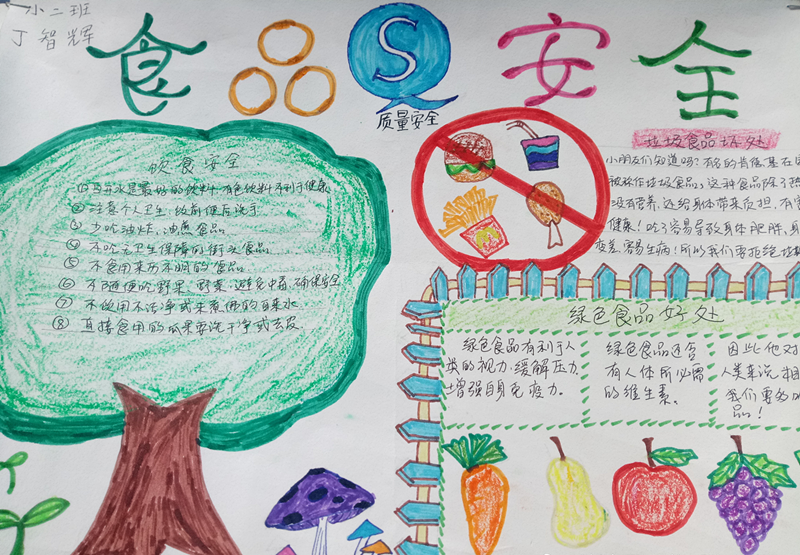 小二班
丁智辉
食品安全
S
质量安全
饮食安全
①白开水是最好的饮料,有色饮料不利于健康
②注意个人卫生,饭前便后洗手
③少吃油炸、油煎食品
④不吃无卫生保障的街头食品
⑤不食用来历不明的食品
⑥不随便吃野果、野菜,避免中毒,确保安全
⑦不饮用不洁净或未煮沸的自来水
⑧直接食用的瓜果要洗干净或去皮
垃圾食品坏处
小朋友们知道吗?有名的肯德基在国
被称作垃圾食品,这种食品除了热
没有营养,还给身体带来负担,不
健康!吃了容易导致身体肥胖,身
变差,容易生病!所以我们要拒绝垃圾
绿色食品好处
绿色食品有利于人
类的视力,缓解压力,
增强自身免疫力。
绿色食品还含
有人体所必需
的维生素。
因此他对
人类来说,相
我们要多吃
品!